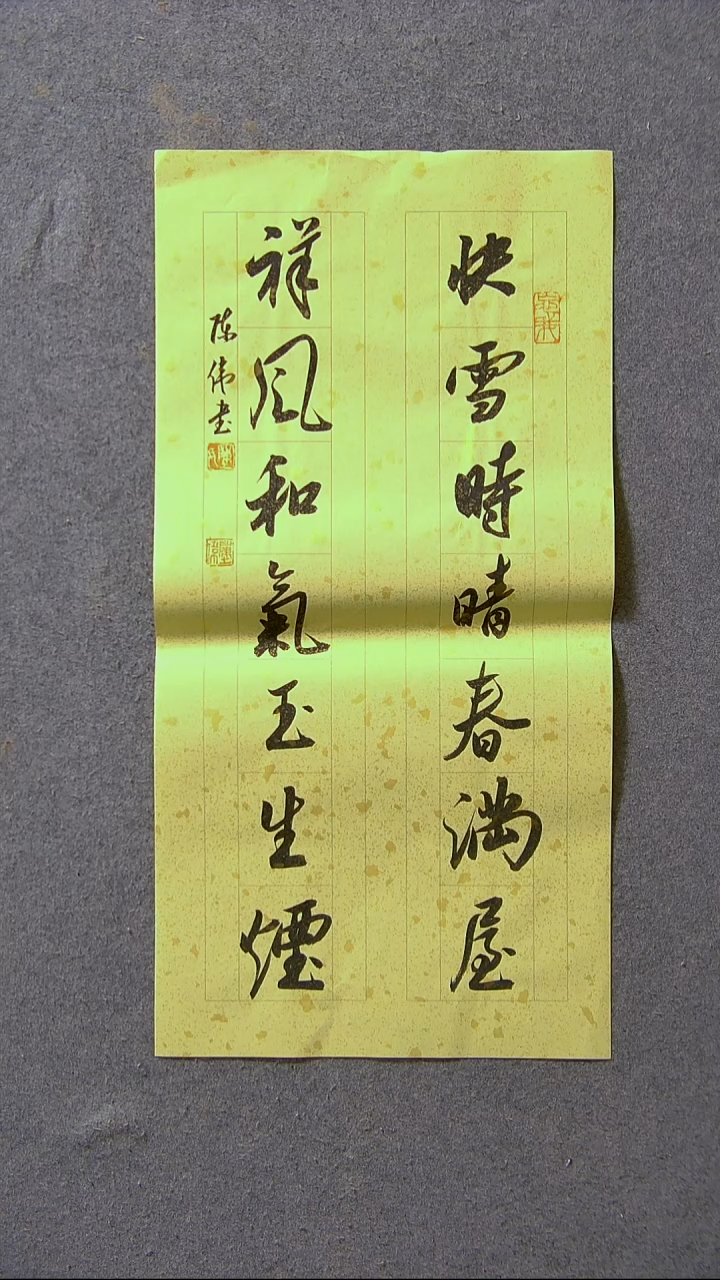 快雪時晴春満屋
祥风和氣玉生煙
陈伟书